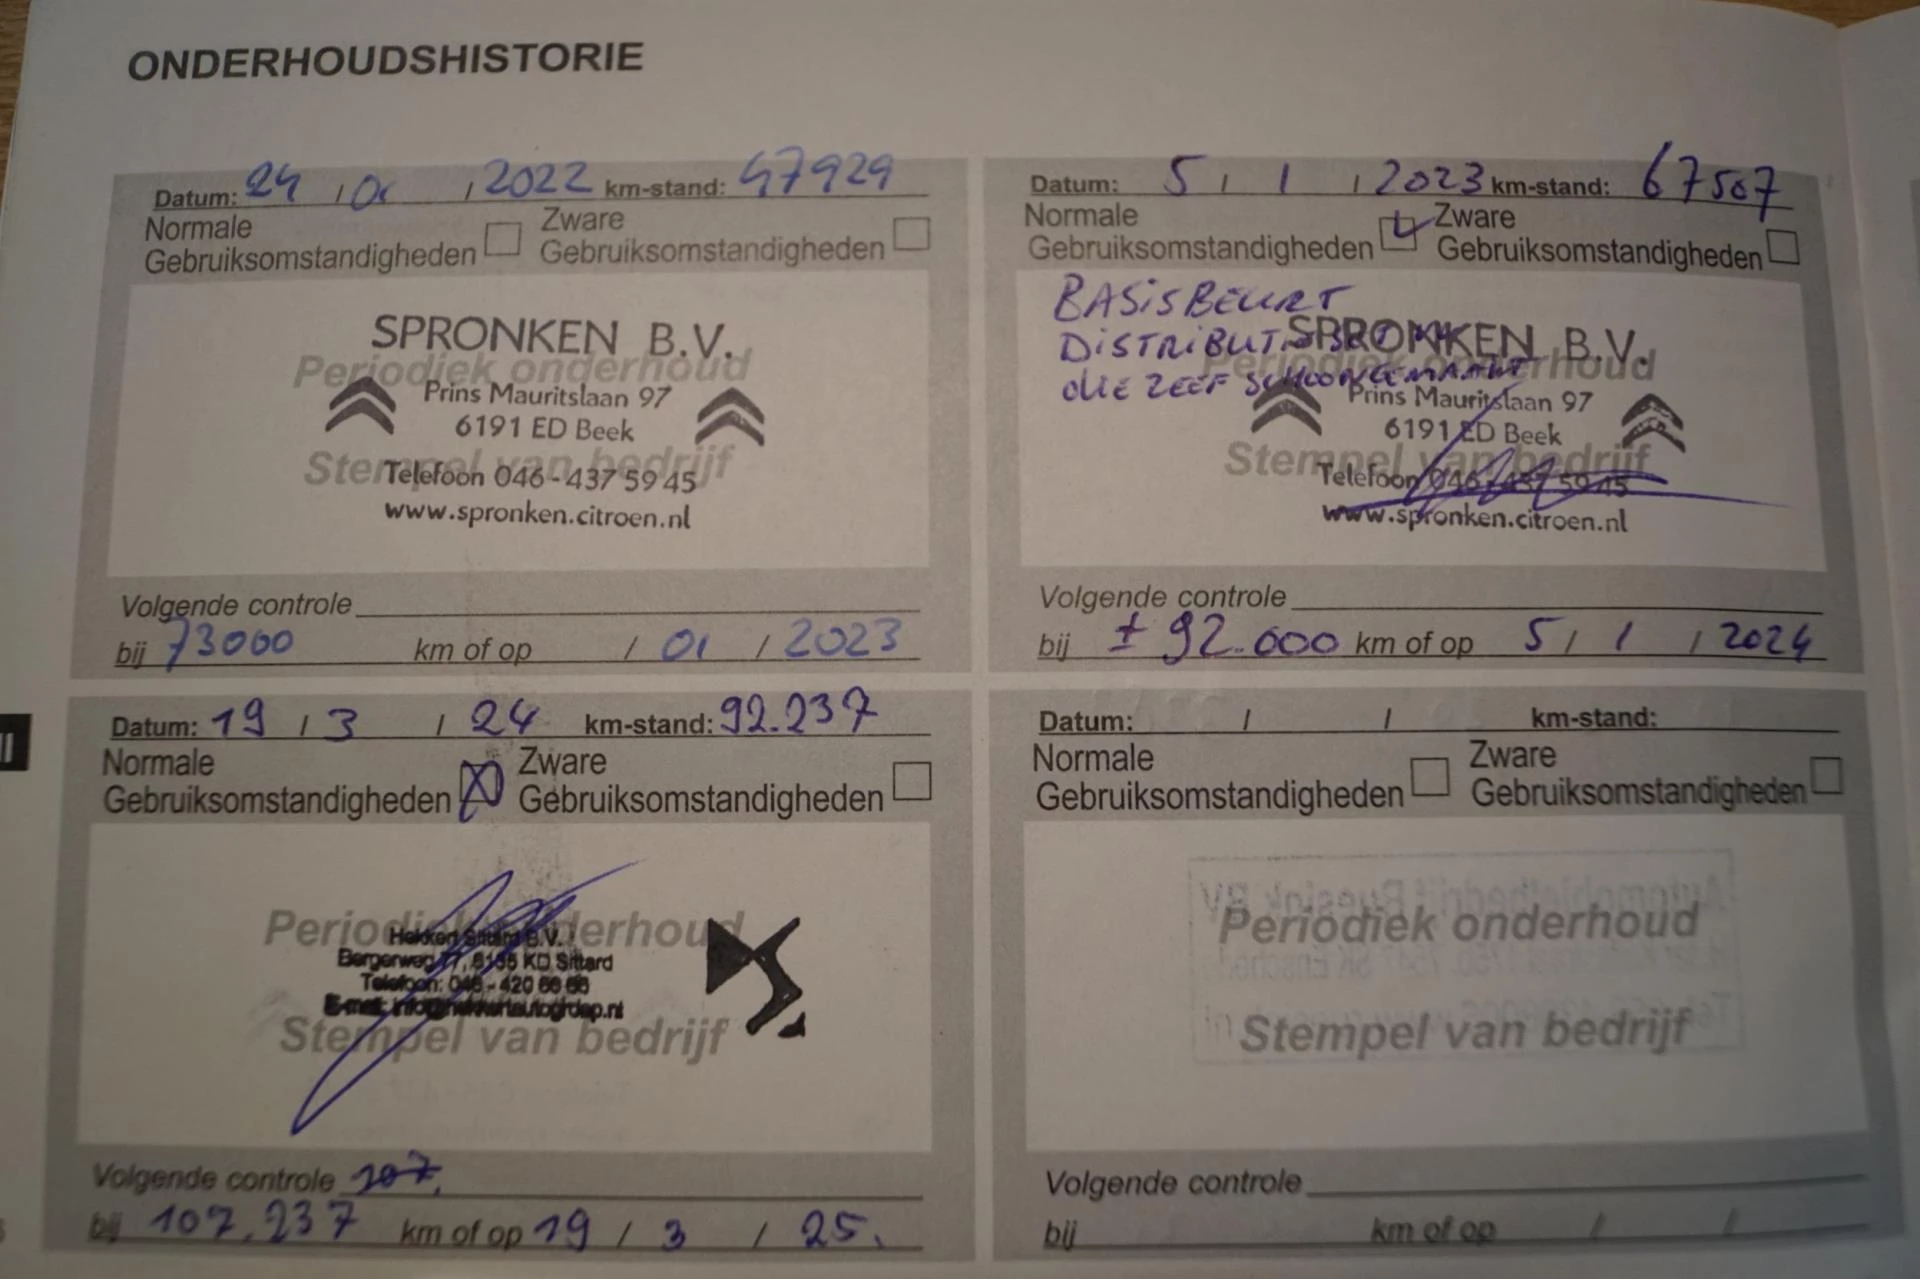 ONDERHOUDSHISTORIE
Datum: 24 / 01 / 2022 km-stand: 47929
Normale
Gebruiksomstandigheden
Zware
Gebruiksomstandigheden
SPRONKEN B.V.
Periodiek onderhoud
Prins Mauritslaan 97
6191 ED Beek
Stempel van bedrijf
Telefoon 046-437 59 45
www.spronken.citroen.nl
Volgende controle
bij 73000 km of op / 01 / 2023
Datum: 5 / 1 / 2023 km-stand: 67507
Normale
Gebruiksomstandigheden
Zware
Gebruiksomstandigheden
BASISBEURT
DISTRIBUT
SPRONKEN B.V.
Periodiek onderhoud
OLIE ZEEF SCHOONGEMAAKT
Prins Mauritslaan 97
6191 ED Beek
Stempel van bedrijf
Telefoon 046-437 59 45
www.spronken.citroen.nl
Volgende controle
bij ± 92.000 km of op 5 / 1 / 2024
Datum: 19 / 3 / 24 km-stand: 92.237
Normale
Gebruiksomstandigheden
Zware
Gebruiksomstandigheden
Periodiek onderhoud
Hekkert Sittard B.V.
Bergerweg KD Sittard
Telefoon: 046 - 420
Stempel van bedrijf
Volgende controle 107.
bij 107.237 km of op 19 / 3 / 25.
Datum: / / km-stand:
Normale
Gebruiksomstandigheden
Zware
Gebruiksomstandigheden
Periodiek onderhoud
Stempel van bedrijf
Volgende controle
bij km of op / /